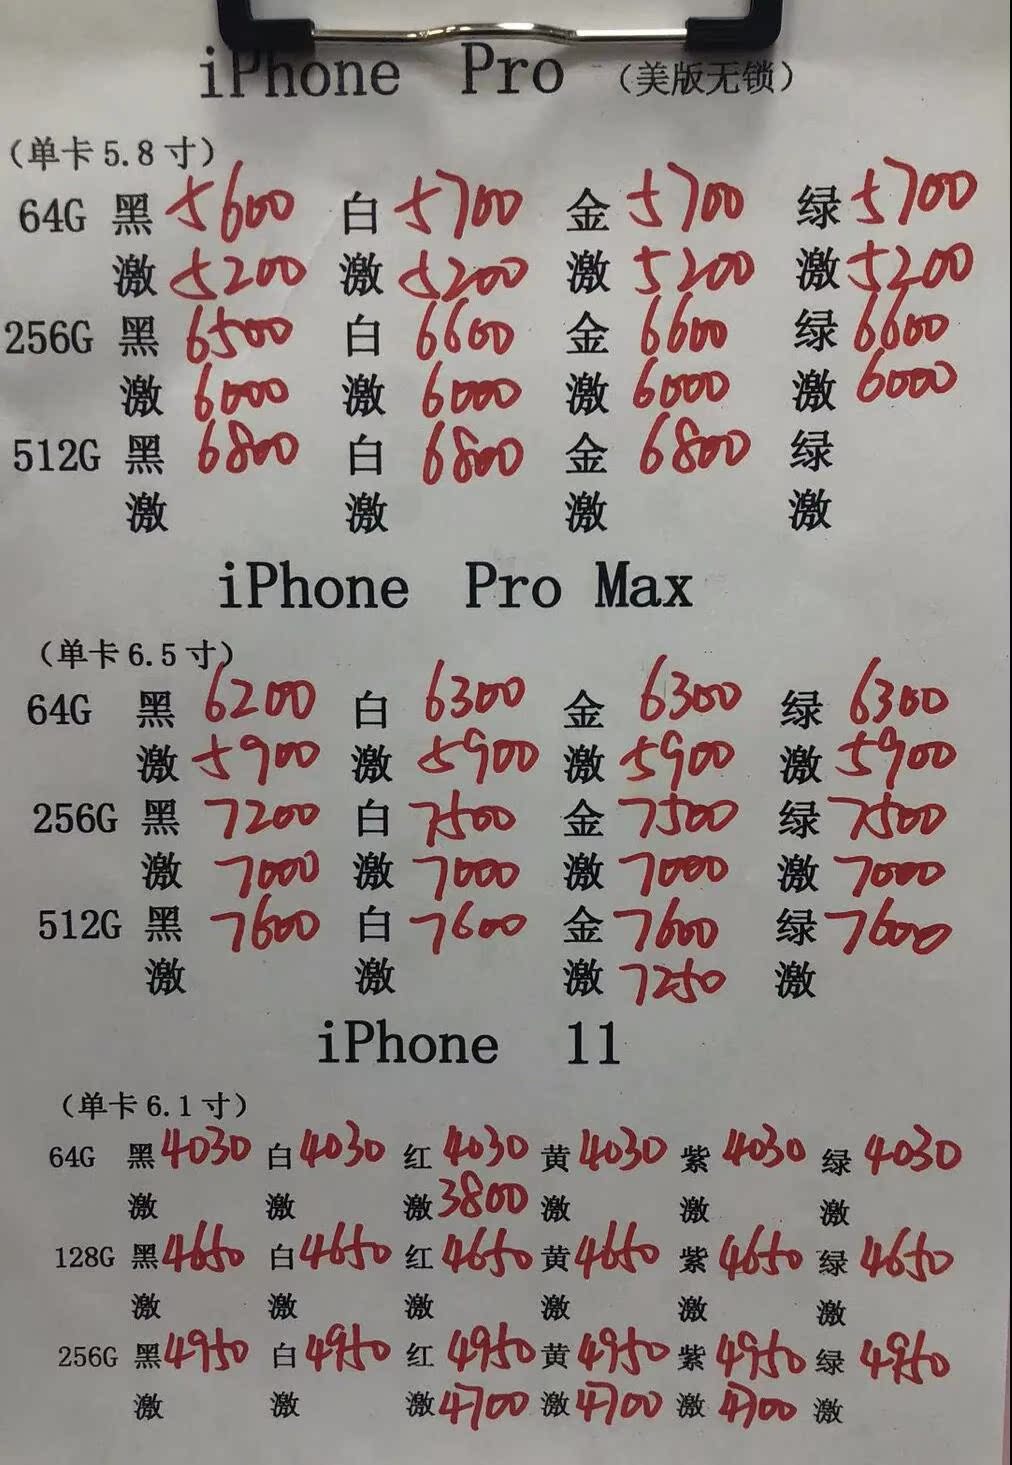 iPhone Pro （美版无锁）
（单卡5.8寸）
64G 黑 5600 白 5700 金 5700 绿 5700
激 5200 激 5200 激 5200 激 5200
256G 黑 6500 白 6600 金 6600 绿 6600
激 6000 激 6000 激 6000 激 6000
512G 黑 6800 白 6800 金 6800 绿
激 激 激 激
iPhone Pro Max
（单卡6.5寸）
64G 黑 6200 白 6300 金 6300 绿 6300
激 5900 激 5900 激 5900 激 5900
256G 黑 7200 白 7500 金 7500 绿 7500
激 7000 激 7000 激 7000 激 7000
512G 黑 7600 白 7600 金 7600 绿 7600
激 激 激 7250 激
iPhone 11
（单卡6.1寸）
64G 黑 4030 白 4030 红 4030 黄 4030 紫 4030 绿 4030
激 激 激 3800 激 激 激
128G 黑 4650 白 4650 红 4650 黄 4650 紫 4650 绿 4650
激 激 激 激 激 激
256G 黑 4950 白 4950 红 4950 黄 4950 紫 4950 绿 4950
激 激 激 4700 激 4700 激 4700 激